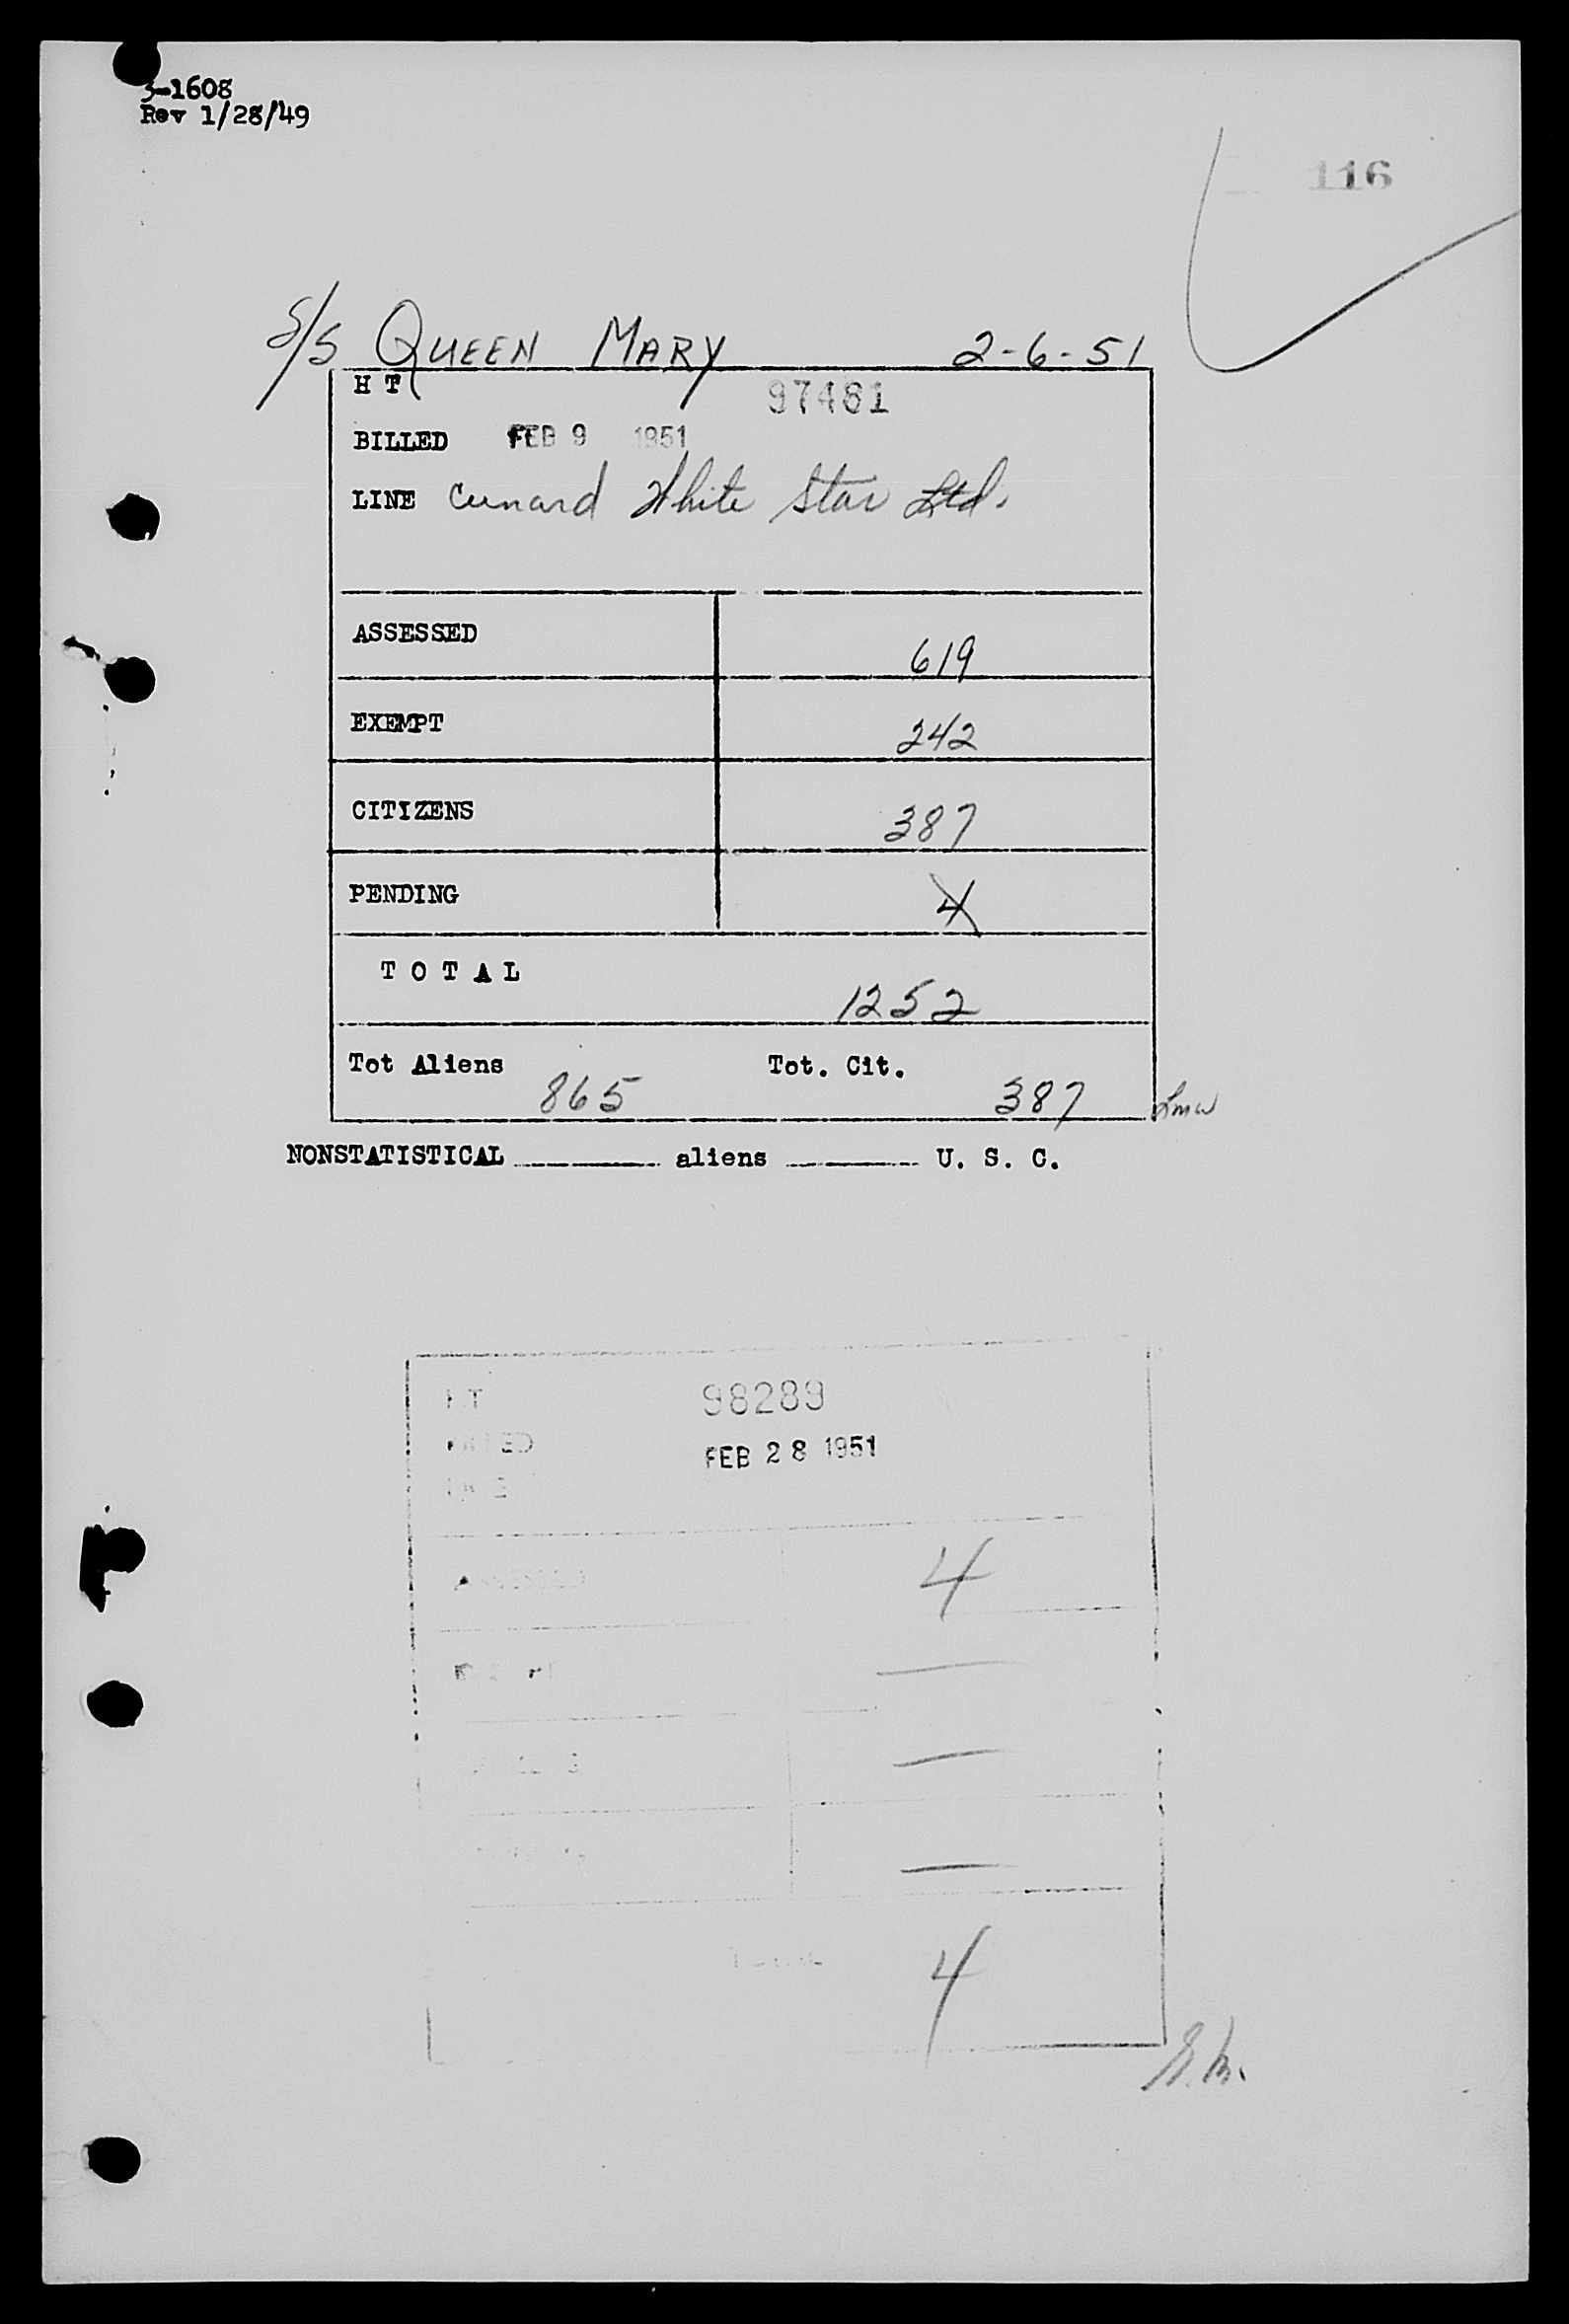 3-1608
Rev 1/28/49
116
S/S QUEEN MARY 2-6-51
H T 97481
BILLED FEB 9 1951
LINE Cunard White Star Ltd.
ASSESSED 619
EXEMPT 242
CITIZENS 387
PENDING 4
T O T A L 1252
Tot Aliens 865 Tot. Cit. 387
NONSTATISTICAL aliens U. S. C.
98289
FEB 28 1951
4
4